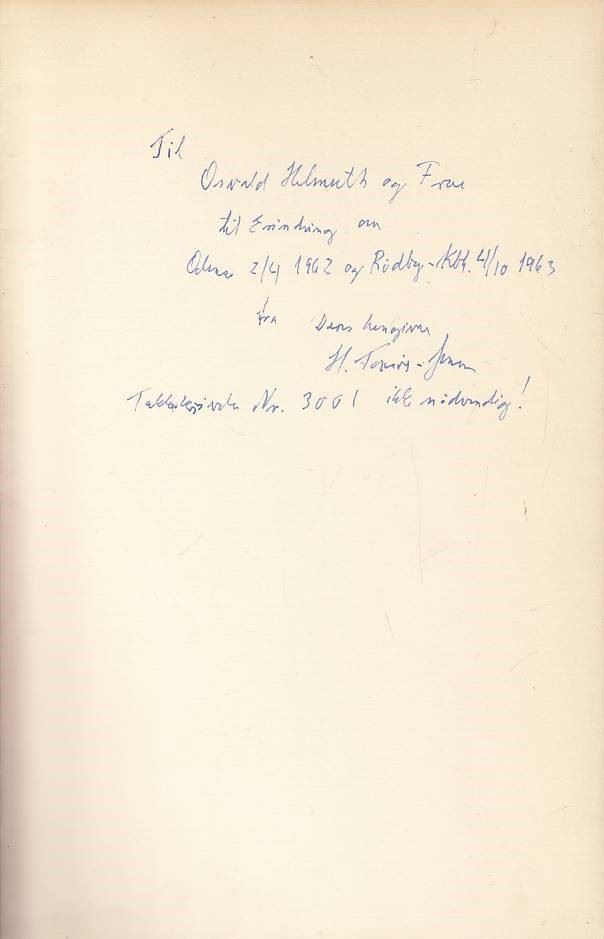 Til
Osvald Helmuth og Frue
til Erindring om
2/4 1962 og Rødby-Kbh. 4/10 1963
fra Deres hengivne
H.
Nr. 3001 ikke nødvendig!